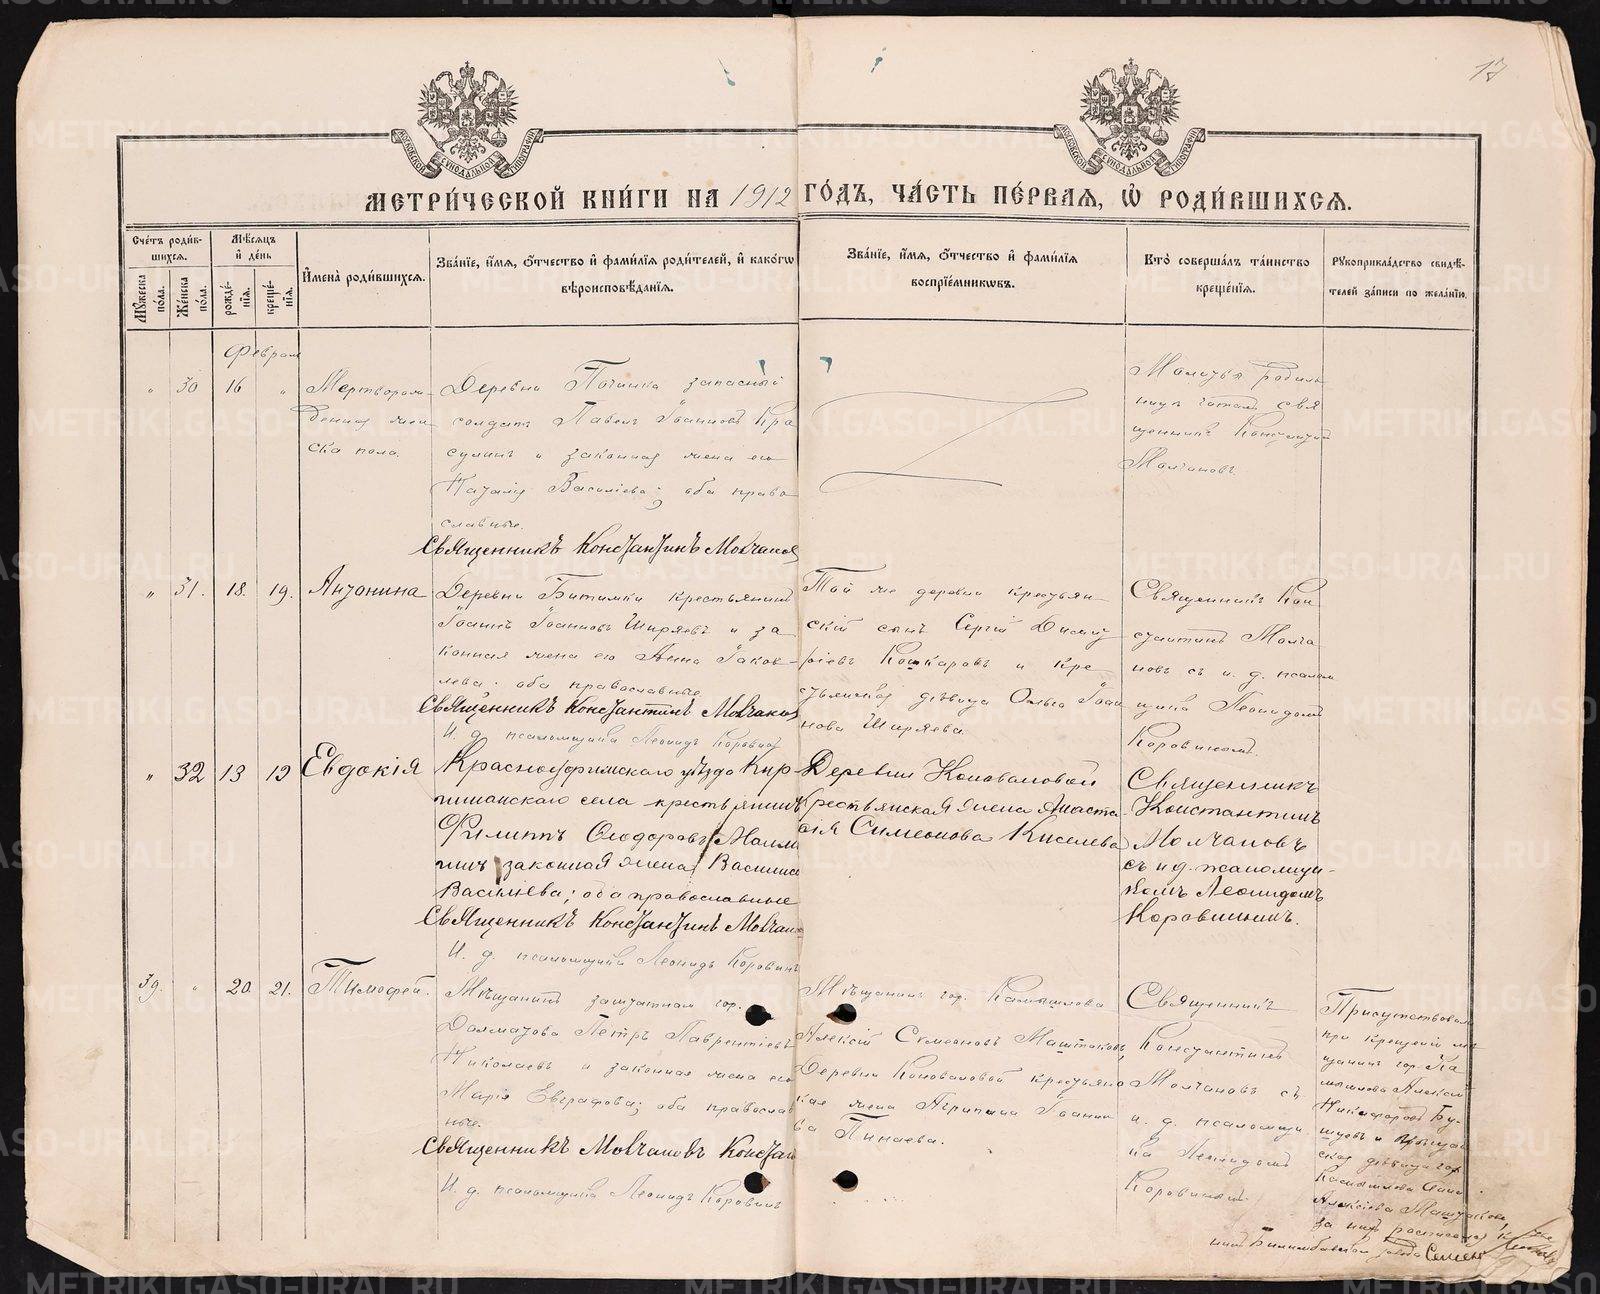 17
МЕТРИ́ЧЕСКОЙ КНИ́ГИ НА 1912 ГО́ДЪ, ЧА́СТЬ ПЕ́РВАѦ, Ѽ РОДИ́ВШИХСѦ.
Сче́тъ роди́вшихсѧ.
Мꙋ́жеска по́ла.
Же́нска по́ла.
Мѣ́сѧцъ и҆ де́нь
рожде́нїѧ.
креще́нїѧ.
И҆мена̀ роди́вшихсѧ.
Зва́нїе, и҆́мѧ, ѻ҆́тчество и҆ фами́лїѧ роди́телей, и҆ како́гѡ
вѣроисповѣ́данїѧ.
Зва́нїе, и҆́мѧ, ѻ҆́тчество и҆ фами́лїѧ
воспрїе́мникѡвъ.
Кто̀ соверша́лъ та́инство
креще́нїѧ.
Рꙋкоприкла́дство свидѣ́-
телей за́писи по жела́нїю.
Февраль
" 30 16 "
Мерторож-
денная жен
ска пола.
Деревни Починка запасный
солдатъ Павелъ Іоанновъ Кра
сулинъ и законная жена его
Наталія Васильева; оба право
славные.
Священникъ Константинъ Молчановъ
Молитвы родиль
ницѣ читалъ свя
щенникъ Константинъ
Молчановъ.
" 31. 18. 19.
Антонина
Деревни Битимки крестьянинъ
Іоаннъ Іоанновъ Ширяевъ и за
конная жена его Анна Іаков-
лева. оба православные
Священникъ Константинъ Молчановъ
И. д. псаломщика Леонидъ Коровинъ
Той же деревни крестьян
скій сынъ Сергій Димит
ріевъ Кошкаровъ и кре
стьянская дѣвица Ольга Іоан
нова Ширяева.
Священникъ Кон
стантинъ Молча
новъ съ и. д. псалом
щика Леонидомъ
Коровинымъ.
" 32 13 19
Евдокія
Красноуфимскаго уѣзда Кир-
гишанскаго села крестьянинъ
Филиппъ Ѳеодоровъ
законная жена Васисса
Васильева; оба православные
Священникъ Константинъ Молчановъ
И. д. псаломщика Леонидъ Коровинъ
Деревни Коноваловой
крестьянская жена Анаста
сія Симеонова Киселева
Священникъ
Константинъ
Молчановъ
съ и д. псаломщи-
комъ Леонидомъ
Коровинымъ.
39. " 20. 21.
Тимофей.
Мѣщанинъ заштатнаго гор.
Далматова Петръ Лаврентіевъ
Николаевъ и законная жена его
Марія Евграфова; оба православ
ные.
Священникъ Молчановъ Констан
И. д. псаломщика Леонидъ Коровинъ
Мѣщанинъ гор. Камышлова
Алексій Симеоновъ Маштаковъ,
Деревни Коноваловой крестьянс
кая жена Агрипина Іоанно
ва Пинаева.
Священникъ
Константинъ
Молчановъ съ
и. д. псаломщи
ка Леонидомъ
Коровинымъ.
Присутствовали
при крещеніи мѣ
щанинъ гор. Ка
мышлова Алексій
Никифоровъ Бу-
и мѣщан
ская дѣвица гор
Камышлова Анна
Алексіева Маштакова
за нихъ росписался
Билимбаевскаго завода Семен